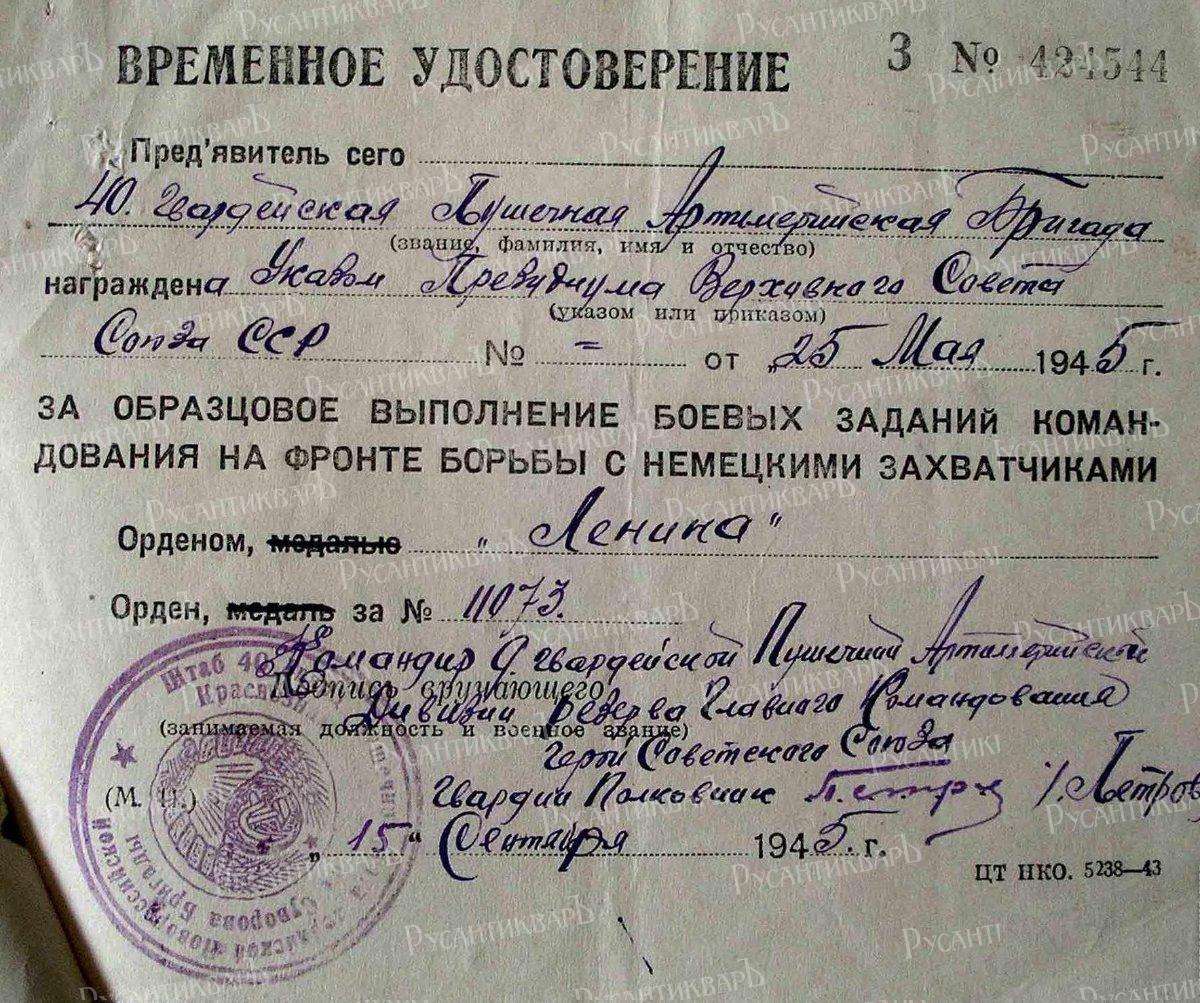 ВРЕМЕННОЕ УДОСТОВЕРЕНИЕ З № 424544
Пред'явитель сего
40. Гвардейская Пушечная Артиллерийская Бригада
(звание, фамилия, имя и отчество)
награждена Указом Президиума Верховного Совета
(указом или приказом)
Союза ССР № = от „25 Мая 1945 г.
ЗА ОБРАЗЦОВОЕ ВЫПОЛНЕНИЕ БОЕВЫХ ЗАДАНИЙ КОМАН-
ДОВАНИЯ НА ФРОНТЕ БОРЬБЫ С НЕМЕЦКИМИ ЗАХВАТЧИКАМИ
Орденом, медалью „Ленина"
Орден, медаль за № 11073.
Командир 9 гвардейской Пушечной Артиллерийской
Подпись вручающего
Дивизии резерва Главного Командования
(занимаемая должность и военное звание)
Герой Советского Союза
(М. П.) Гвардии Полковник Петров /Петров
„15" Сентября 1945 г.
ЦТ НКО. 5238—43
Штаб 40
Суворова Бригады
РусантикварЪ